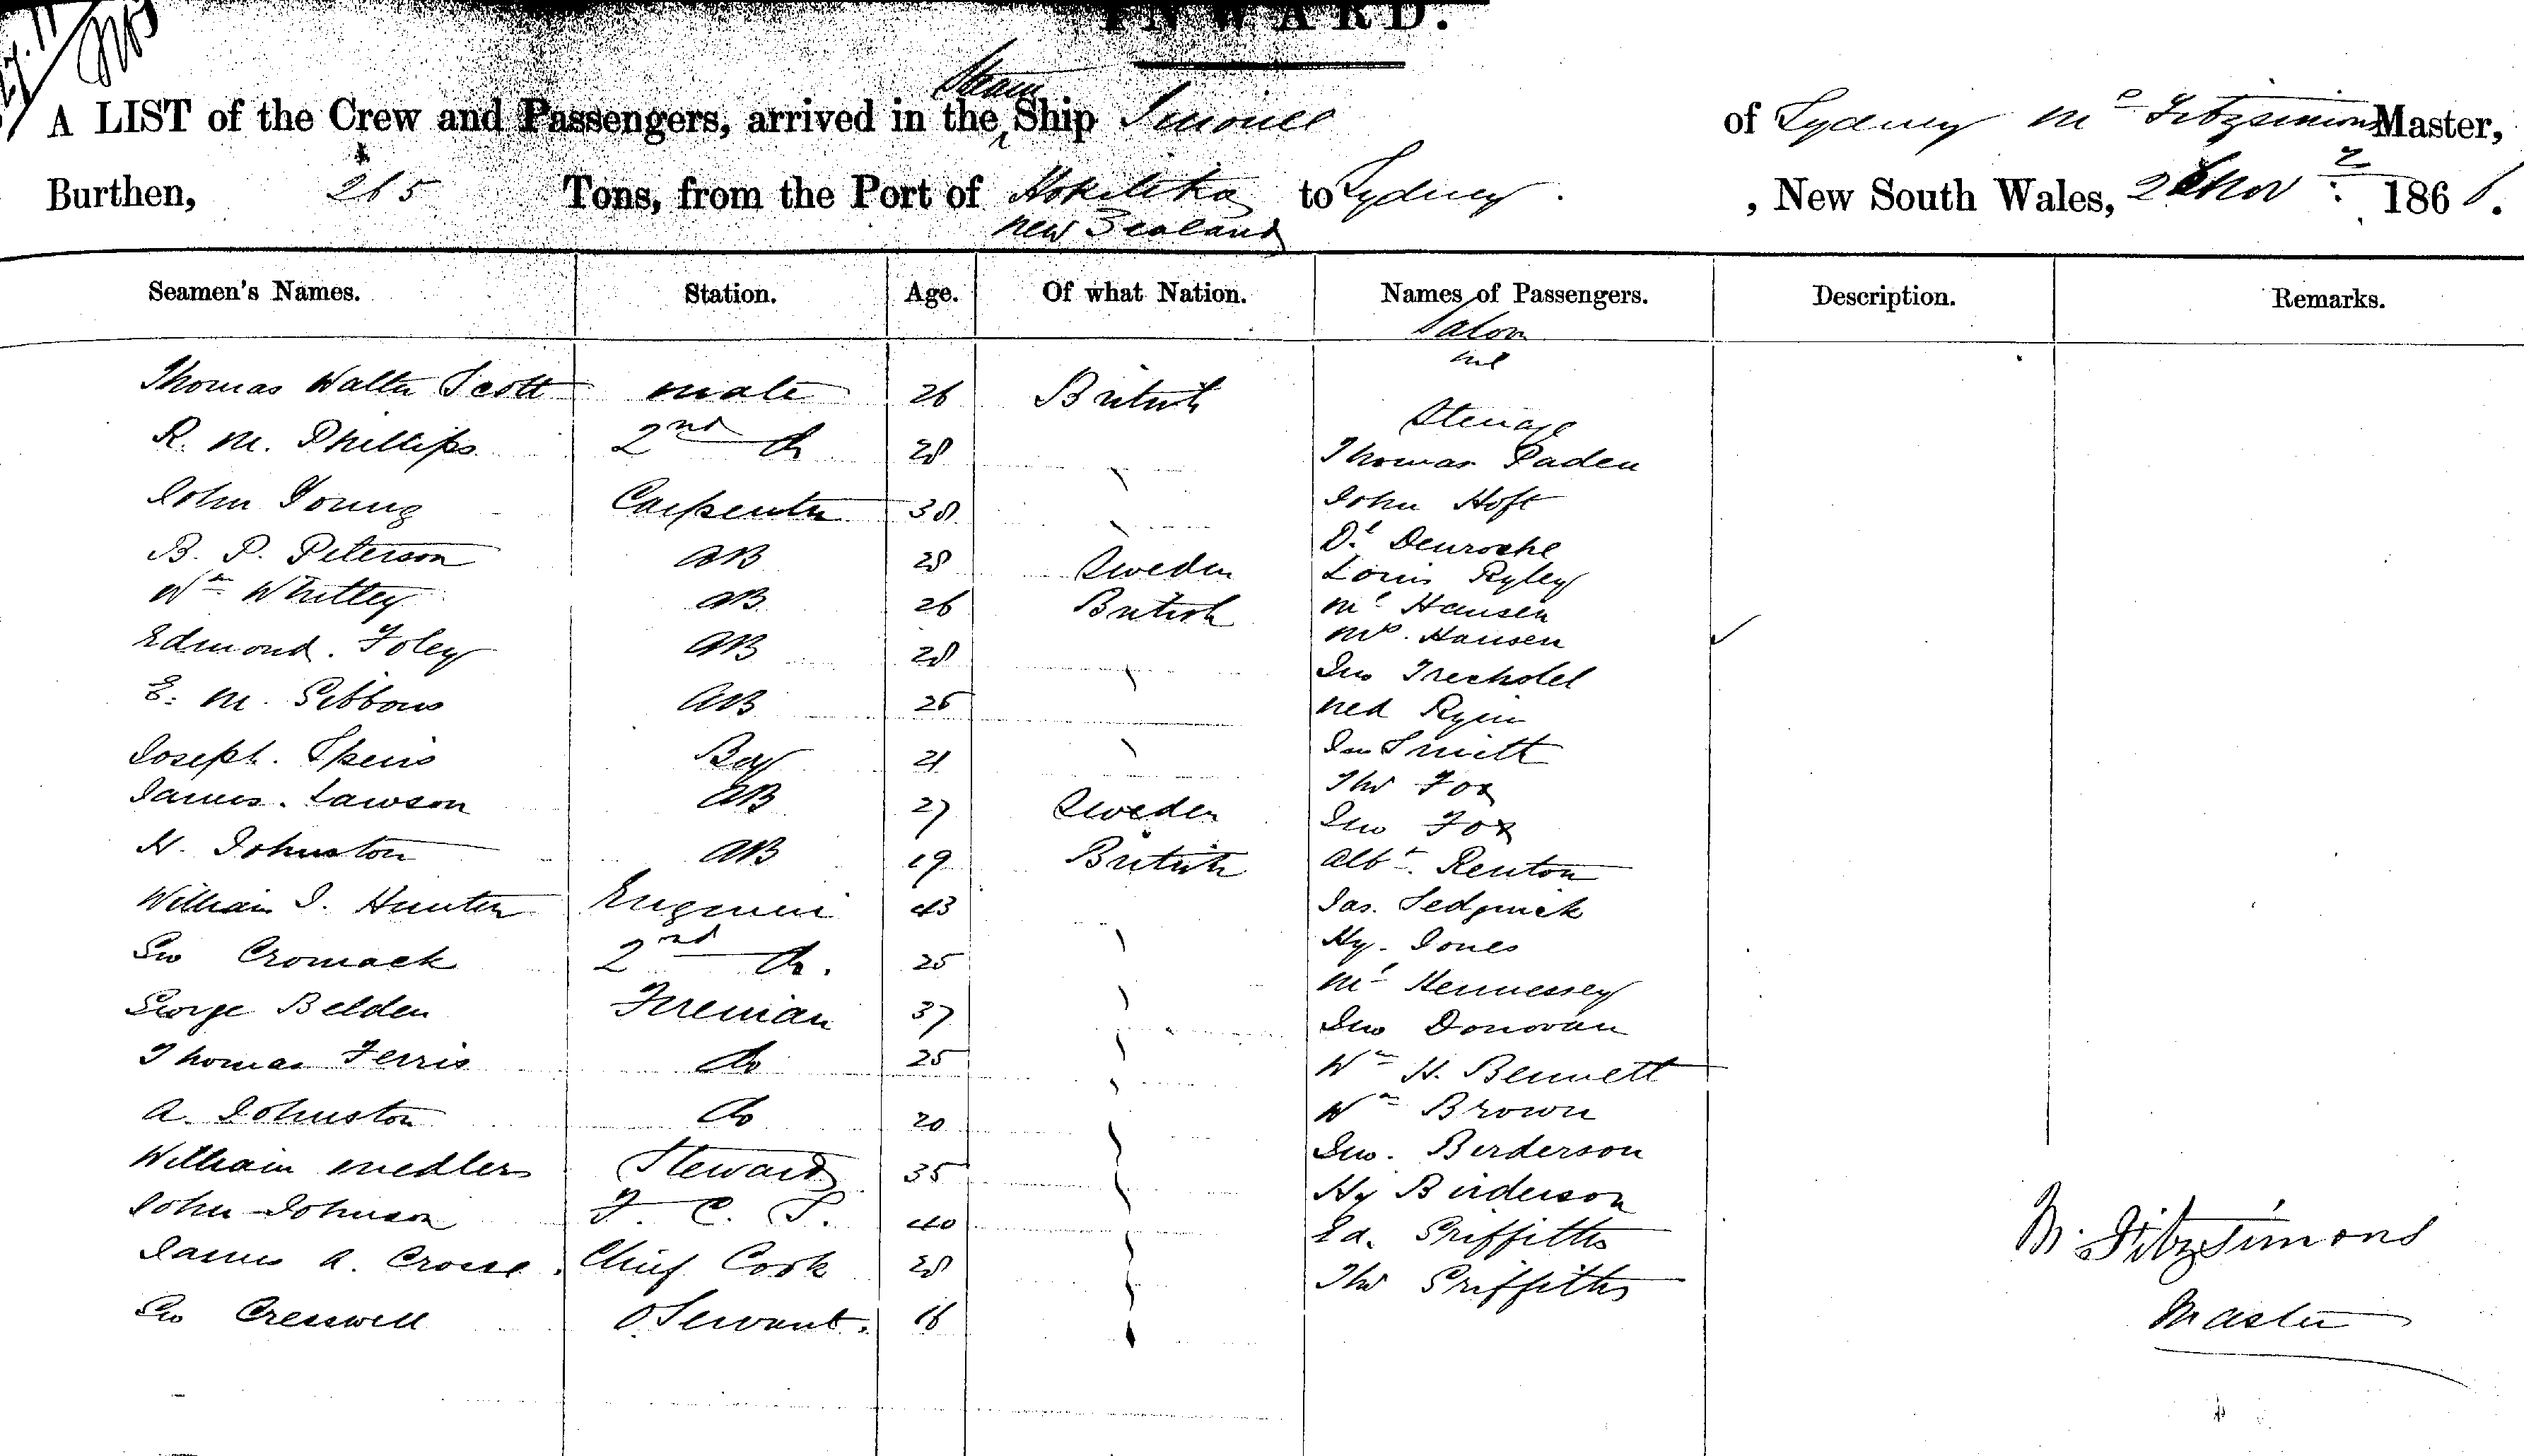 INWARD.
Steam
A LIST of the Crew and Passengers, arrived in the Ship of Sydney Mc Fitzsimons Master,
Burthen, 265 Tons, from the Port of Hokitika to Sydney. , New South Wales, Nov 186
New Zealand
Seamen's Names. Station. Age. Of what Nation. Names of Passengers. Description. Remarks.
Saloon
nil
Thomas Walter Scott mate 26 British
Steerage
R. M. Phillips 2nd Do 28 Thomas Paden
John Young Carpenter 38 John Hoft
Dl Denroche
B. P. Peterson AB 28 Sweden Louis Ryley
Wm Whittey AB 26 British Mr Hansen
Mrs. Hansen
Edmond. Foley AB 28 Jno Trecholel
E. M. Gibbons AB 25 Ned
Joseph. Speirs Boy 21 Jno Smith
Thos Fox
James. Lawson AB 27 Sweden Jno Fox
H. Johnston AB 19 British Albt. Renton
William J. Hunter Engineer 43 Jas. Sedgwick
Hy. Jones
Geo Cromack 2nd Do. 25 Mr Hennessey
George Belden Fireman 37 Jno Donovan
Thomas Ferris do 25 Wm H. Bennett
A. Johnston do 20 Wm Brown
Jno. Birderson
William Medlers Steward 35 Hy Birderson
John Johnson F. C. S. 40 Ed. Griffiths
James A. Crosse. Chief Cook 28 Thos Griffiths
Geo Cresswell O Servant. 16
M. Fitzsimons
Master